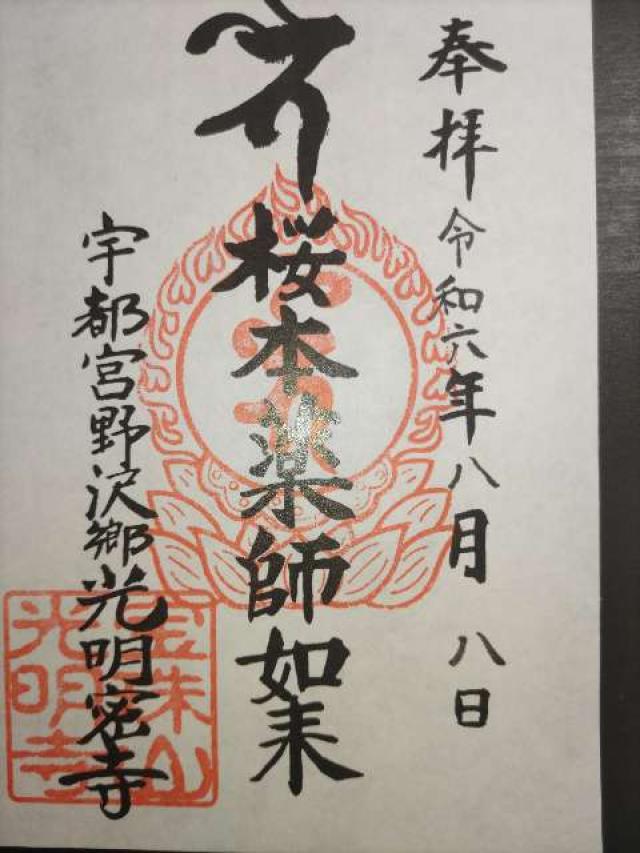 奉拝 令和六年八月八日
桜本薬師如来
宇都宮野沢郷光明密寺
光明寺